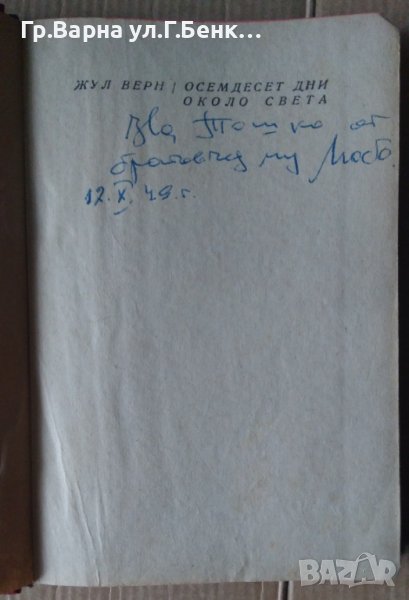 Гр.Варна ул.Г.Бенк...
ЖУЛ ВЕРН | ОСЕМДЕСЕТ ДНИ
ОКОЛО СВЕТА
На Тошко от
братовчед му
12.X.49.г.
BAZAR